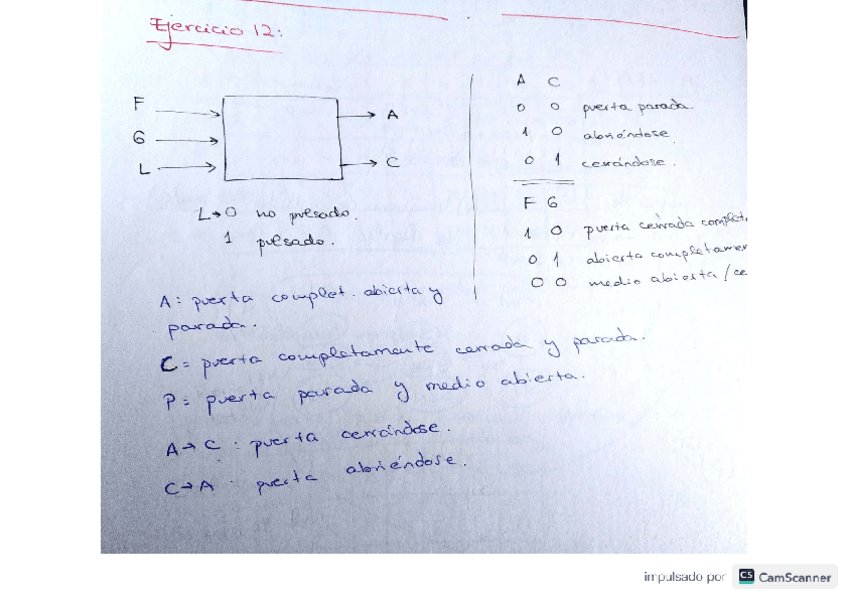 Ejercicio 12:
F
G
L
A
C
L→0 no pulsado.
1 pulsado.
A C
0 0 puerta parada.
1 0 abriéndose
0 1 cerrándose.
F G
1 0 puerta cerrada complet.
0 1 abierta completamen
0 0 medio abierta/ce
A: puerta complet. abierta y
parada.
C= puerta completamente cerrada y parada.
P= puerta parada y medio abierta.
A→C: puerta cerrándose.
C→A: puerta abriéndose.
impulsado por CS CamScanner